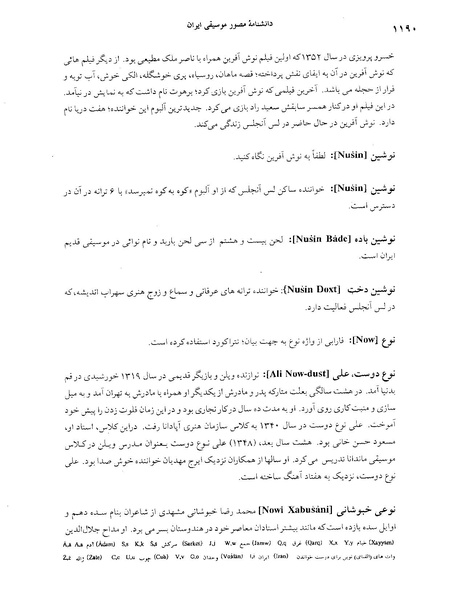 دانشنامهٔ مصور موسیقی ایران
۱۱۹۰
خسرو پرویزی در سال ۱۳۵۲ که اولین فیلم نوش آفرین همراه با ناصر ملک مطیعی بود. از دیگر فیلم هائی
که نوش آفرین در آن به ایفای نقش پرداخته؛ قصه ماهان، روسیاه، پری خوشگله، الکی خوش، آب توبه و
فرار از حجله می باشد. آخرین فیلمی که نوش آفرین بازی کرد؛ برهوت نام داشت که به نمایش در نیآمد.
در این فیلم او در کنار همسر سابقش سعید راد بازی می کرد. جدیدترین آلبوم این خواننده؛ هفت دریا نام
دارد. نوش آفرین در حال حاضر در لس آنجلس زندگی می کند.
نوشین [Nušin]: لطفاً به نوش آفرین نگاه کنید.
نوشین [Nušin]: خواننده ساکن لس آنجلس که از او آلبوم «کوه به کوه نمیرسد» با ۶ ترانه در آن در
دسترس است.
نوشین باده [Nušin Bâde]: لحن بیست و هشتم از سی لحن باربد و نام نوائی در موسیقی قدیم
ایران است.
نوشین دخت [Nušin Doxt]: خواننده ترانه های عرفانی و سماع و زوج هنری سهراب اندیشه، که
در لس آنجلس فعالیت دارد.
نوع [Now]: فارابی از واژه نوع به جهت بیان؛ تتراکورد استفاده کرده است.
نوع دوست، علی [Ali Now-dust]: نوازنده ویلن و بازیگر قدیمی در سال ۱۳۱۹ خورشیدی در قم
بدنیا آمد. در هشت سالگی بعلت متارکه پدر و مادرش از یکدیگر او همراه با مادرش به تهران آمد و به مبل
سازی و منبت کاری روی آورد. او به مدت ده سال در کار نجاری بود و در این زمان فلوت زدن را پیش خود
آموخت. علی نوع دوست در سال ۱۳۴۰ به کلاس سازمان هنری آپادانا رفت. در این کلاس، استاد او،
مسعود حسن خانی بود. هشت سال بعد، (۱۳۴۸) علی نوع دوست بعنوان مدرس ویلن در کلاس
موسیقی ماندانا تدریس می کرد. او سالها از همکاران نزدیک ایرج مهدیان خواننده خوش صدا بود. علی
نوع دوست، نزدیک به هفتاد آهنگ ساخته است.
نوعی خبوشانی [Nowi Xabušâni] محمد رضا خبوشانی مشهدی از شاعران بنام سده دهم و
اوایل سده یازده است که مانند بیشتر استادان معاصر خود در هندوستان بسر می برد. او مداح جلال الدین